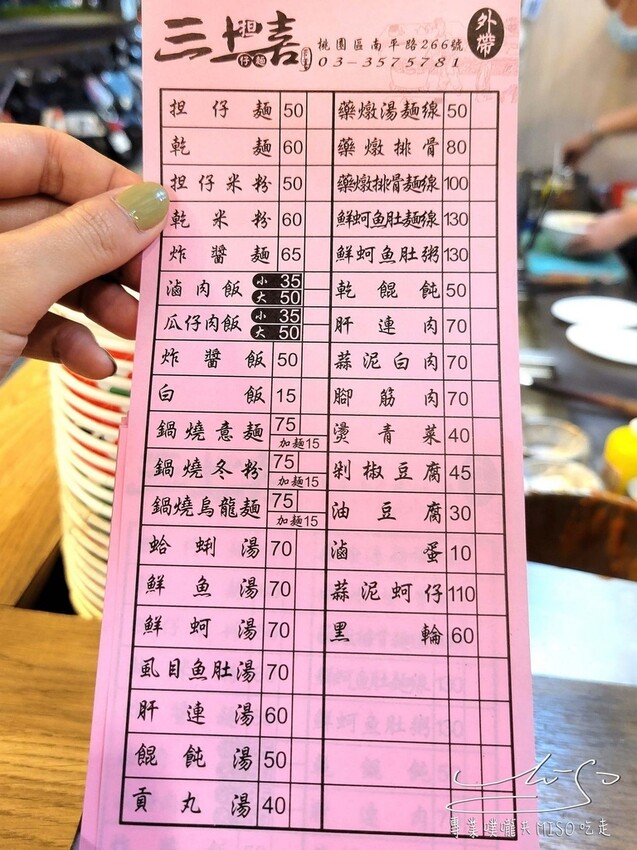 三十嘉
担仔麵
桃園區南平路266號
03-3575781
外帶
担仔麵 50
乾麵 60
担仔米粉 50
乾米粉 60
炸醬麵 65
滷肉飯 小 35
大 50
瓜仔肉飯 小 35
大 50
炸醬飯 50
白飯 15
鍋燒意麵 75
加麵15
鍋燒冬粉 75
加麵15
鍋燒烏龍麵 75
加麵15
蛤蜊湯 70
鮮魚湯 70
鮮蚵湯 70
虱目魚肚湯 70
肝連湯 60
餛飩湯 50
貢丸湯 40
藥燉湯麵線 50
藥燉排骨 80
藥燉排骨麵線 100
鮮蚵魚肚麵線 130
鮮蚵魚肚粥 130
乾餛飩 50
肝連肉 70
蒜泥白肉 70
腳筋肉 70
燙青菜 40
剁椒豆腐 45
油豆腐 30
滷蛋 10
蒜泥蚵仔 110
黑輪 60
專業噗嚨共MISO吃走